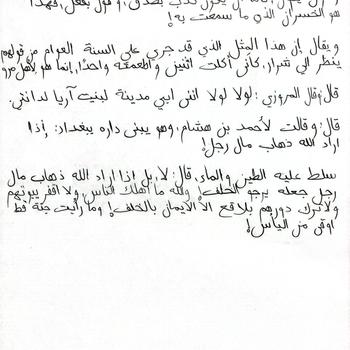 هو الخسران الذي ما سمعت به!
ويقال إن هذا المثل الذي قد جري علي السنة العوام من قولهم
ينظر الي شرار، كأني أكلت اثنين وأطعمته واحدًا، إنما هو لأهل مرو
قال: وقال المروزي: لولا لولا انني ابني مدينة لبنيت آريا لدابتي.
قال: وقالت لأحمد بن هشام، وهو يبني داره ببغداد: إذا
اراد الله ذهاب مال رجل!
سلط عليه الطين والماء، قال: لا، بل إذا اراد الله ذهاب مال
رجل جعله يرجو الخلف! والله ما اهلك الناس، ولا اقفر بيوتهم
ولا ترك دورهم بلاقع الا الايمان بالخلف! وما رأيت جنة قط
اوقى من اليأس!